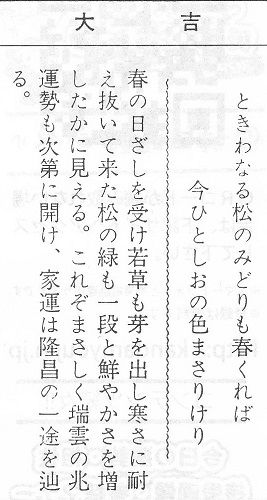 大吉
ときわなる松のみどりも春くれば
今ひとしおの色まさりけり
春の日ざしを受け若草も芽を出し寒さに耐
え抜いて来た松の緑も一段と鮮やかさを増
したかに見える。これぞまさしく瑞雲の兆
運勢も次第に開け、家運は隆昌の一途を辿
る。